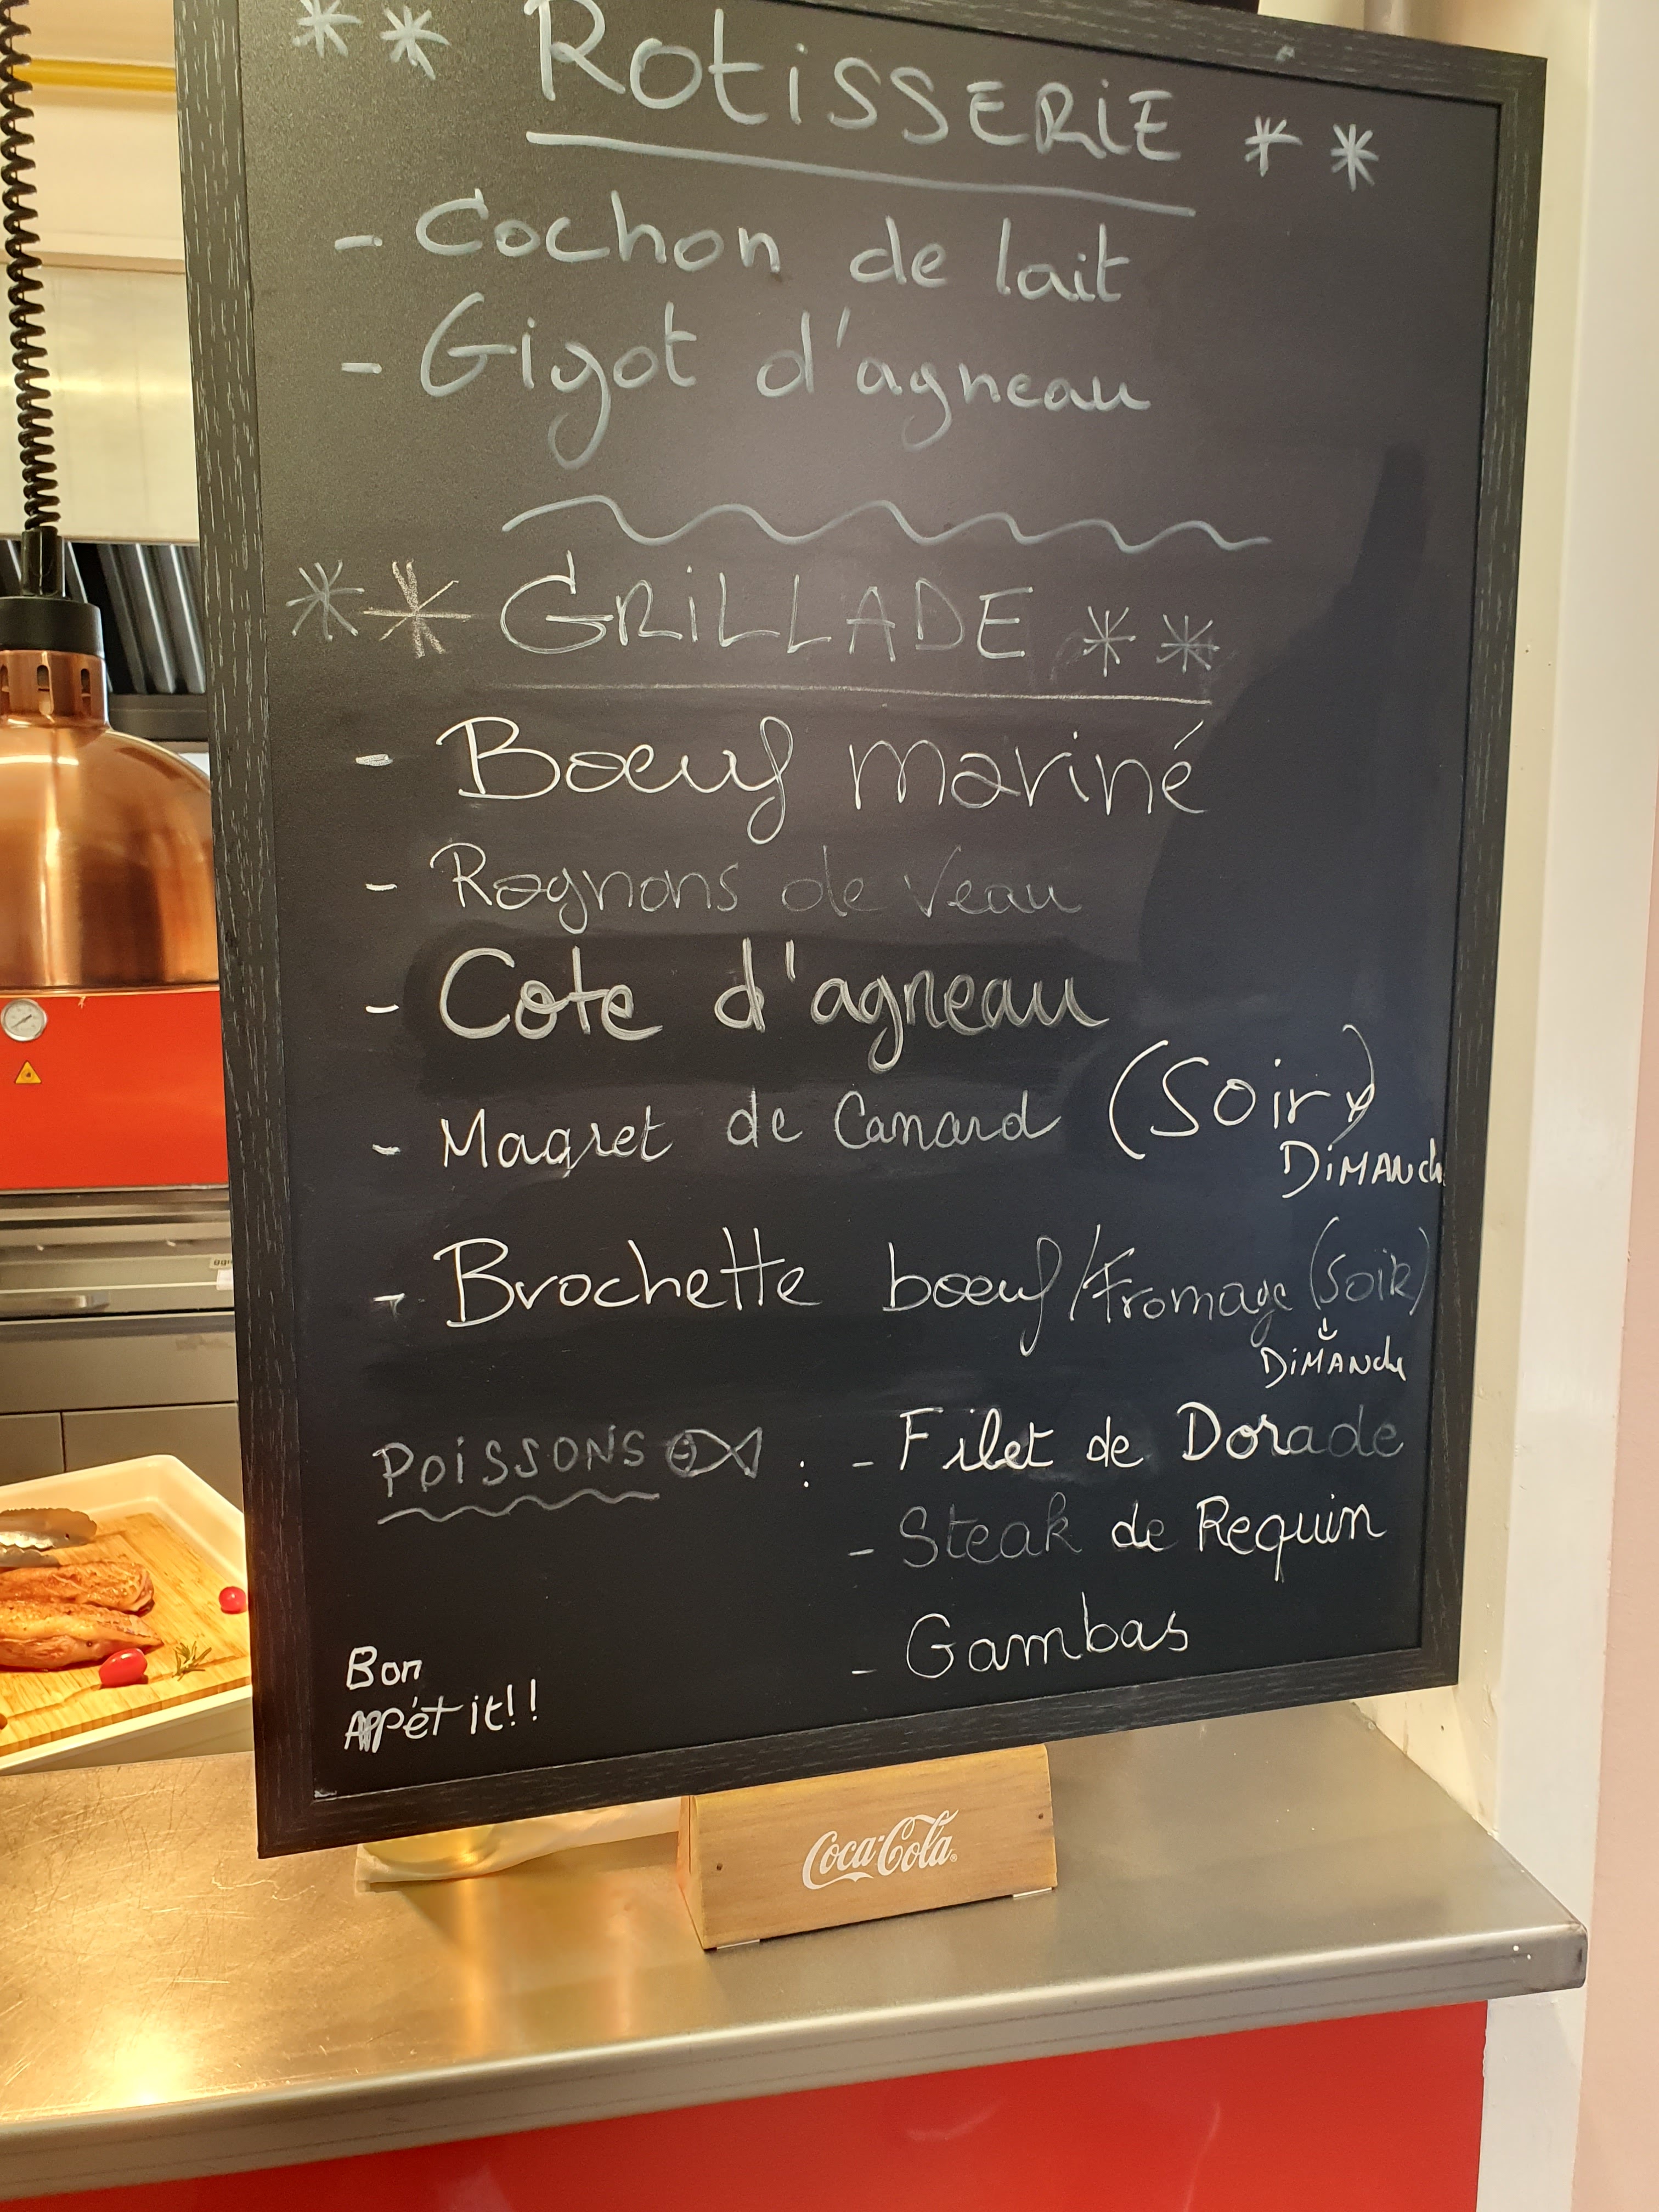 ** ROtiSSERiE **
- Cochon de lait
- Gigot d'agneau
** GRiLLADE **
- Bœuf mariné
- Rognons de Veau
- Cote d'agneau
- Magret de Canard (Soir)
DiMANche
- Brochette bœuf/Fromage (Soir)
DiMANche
POiSSONS : - Filet de Dorade
- Steak de Requin
- Gambas
Bon
APPét it!!
Coca-Cola